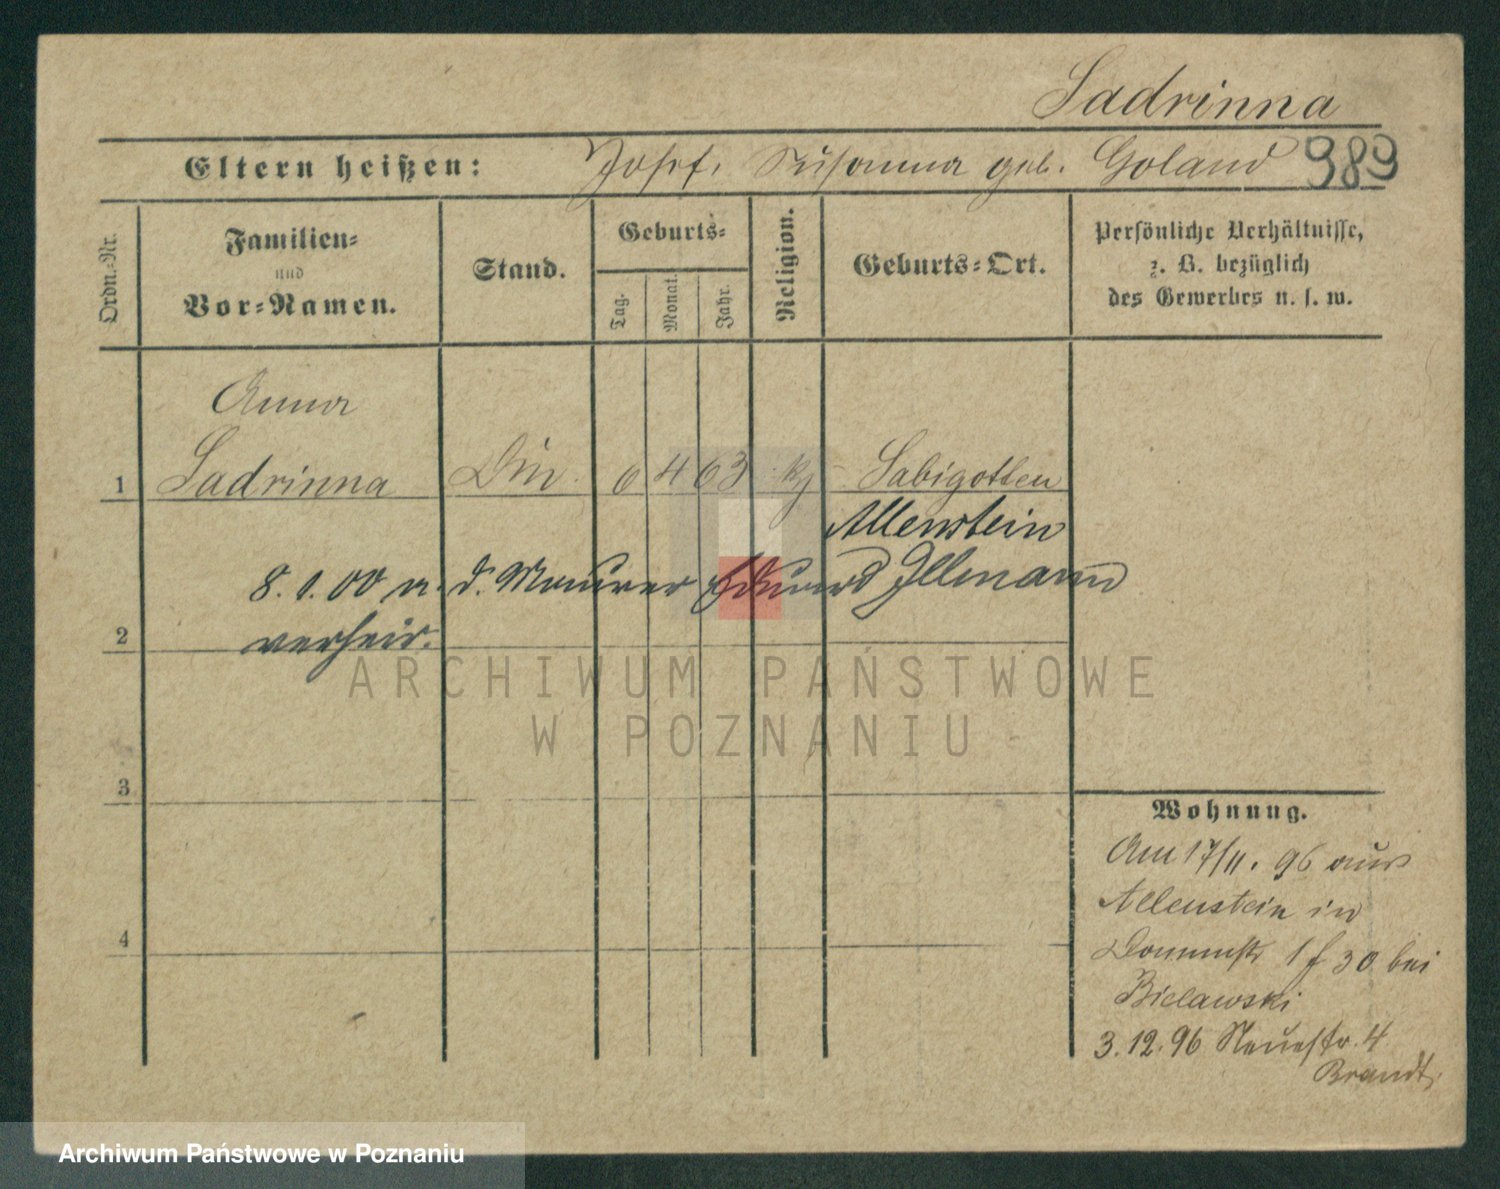 Sadrinna
Eltern heißen: Josef, Susanna geb. Goland 989
Ordn.-Nr.
Familien-
und
Vor-Namen.
Stand.
Geburts-
Tag.
Monat.
Jahr.
Religion.
Geburts-Ort.
Persönliche Verhältnisse,
z. B. bezüglich
des Gewerbes u. s. w.
Anna
1 Sadrinna Din. 6 4 63 kt Labigotten
Allenstein
8.1.00 m. d. Maurer Eduard Illmann
2 verheir.
3
4
Wohnung.
Am 17/11. 96 aus
Allenstein in
Dommstr 1 f 30 bei
Bielawski
3.12.96 Neuestr. 4
Brandt.
ARCHIWUM PAŃSTWOWE
W POZNANIU
Archiwum Państwowe w Poznaniu